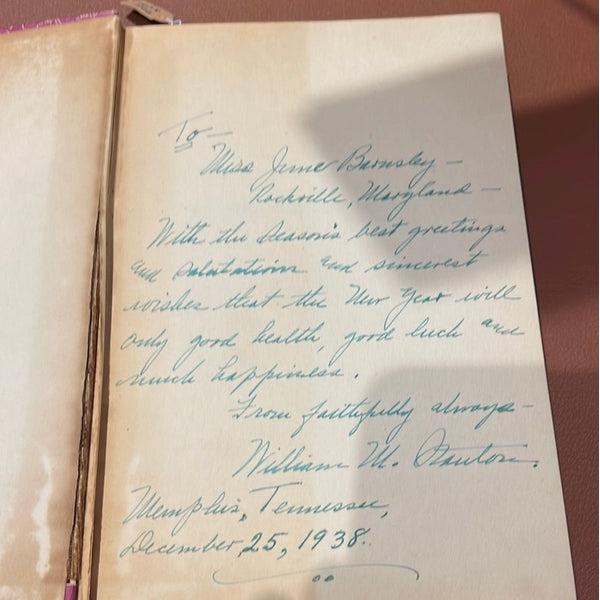 To—
Miss June Barnsley—
Rockville, Maryland—
With the Season's best greetings
and salutations and sincerest
wishes that the New Year will
only good health, good luck and
much happiness.
From faithfully always—
William M. Stanton.
Memphis, Tennessee,
December 25, 1938.